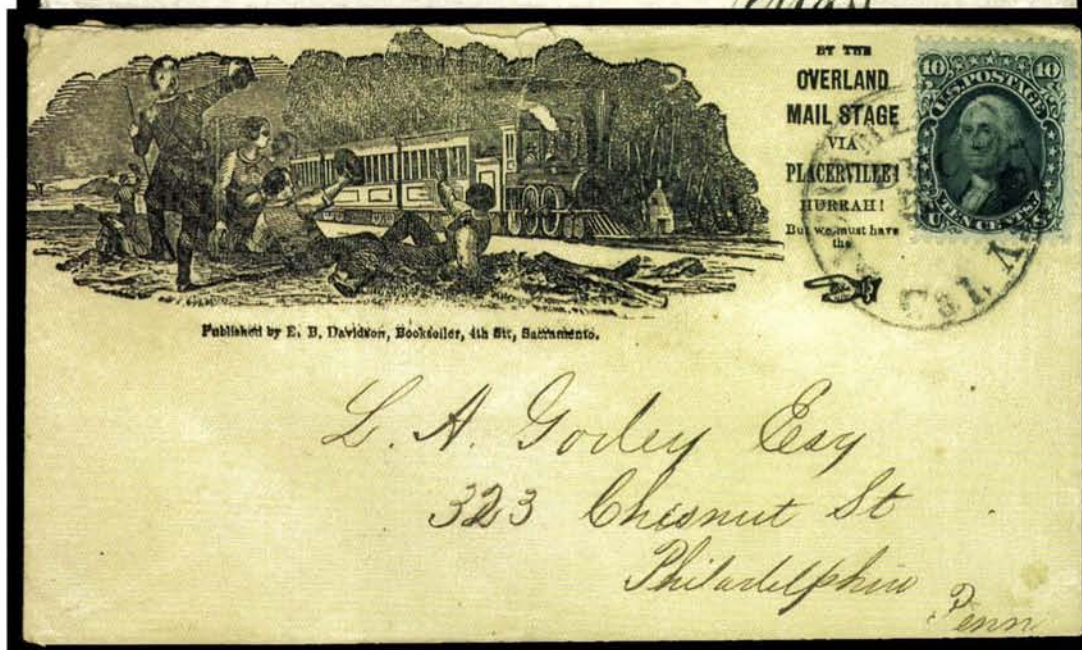 BY THE
OVERLAND
MAIL STAGE
VIA
PLACERVILLE!
HURRAH!
But we must have
the
10 10
U.S. POSTAGE
TEN CENTS
U S
CAL.
Published by E. B. Davidson, Bookseller, 4th Stt, Sacramento.
L. A. Godey Esq
323 Chesnut St
Philadelphia
Penn